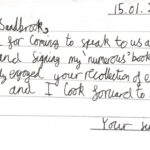 15.01.2
Sandbrook,
for coming to speak to us a
and signing my 'numerous' book
enjoyed your recollection of e
and I look forward to
Your